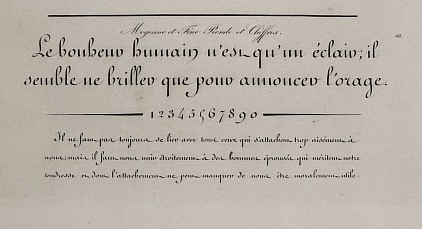 Moyenne et Fine Ronde et Chiffres.
Le bonheur humain n'est qu'un éclair; il
semble ne briller que pour annoncer l'orage.
1234567890
Il ne faut pas toujours se lier avec tous ceux qui s'attachent trop aisément à
nous; mais il faut nous unir étroitement à des hommes éprouvés qui méritent notre
tendresse et dont l'attachement ne peut manquer de nous être moralement utile.